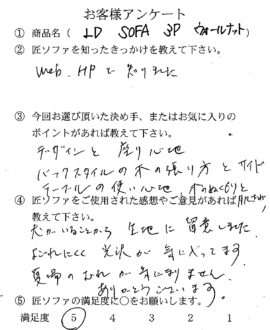 お客様アンケート
① 商品名 ( LD SOFA 3P ウォールナット )
② 匠ソファを知ったきっかけを教えて下さい。
Web. HPで知りました
③ 今回お選び頂いた決め手、またはお気に入りの
ポイントがあれば教えて下さい。
デザインと 座り心地
バックスタイルの木の張り方とサイド
テーブルの使い心地 木のぬくもりと
④ 匠ソファをご使用された感想やご意見があれば
教えて下さい。
犬がいることから 生地に留意しました
よごれにくく 光沢が気に入ってます
夏場の が気になりません
ありがとうございます
⑤ 匠ソファの満足度に○をお願いします。
満足度 5 4 3 2 1